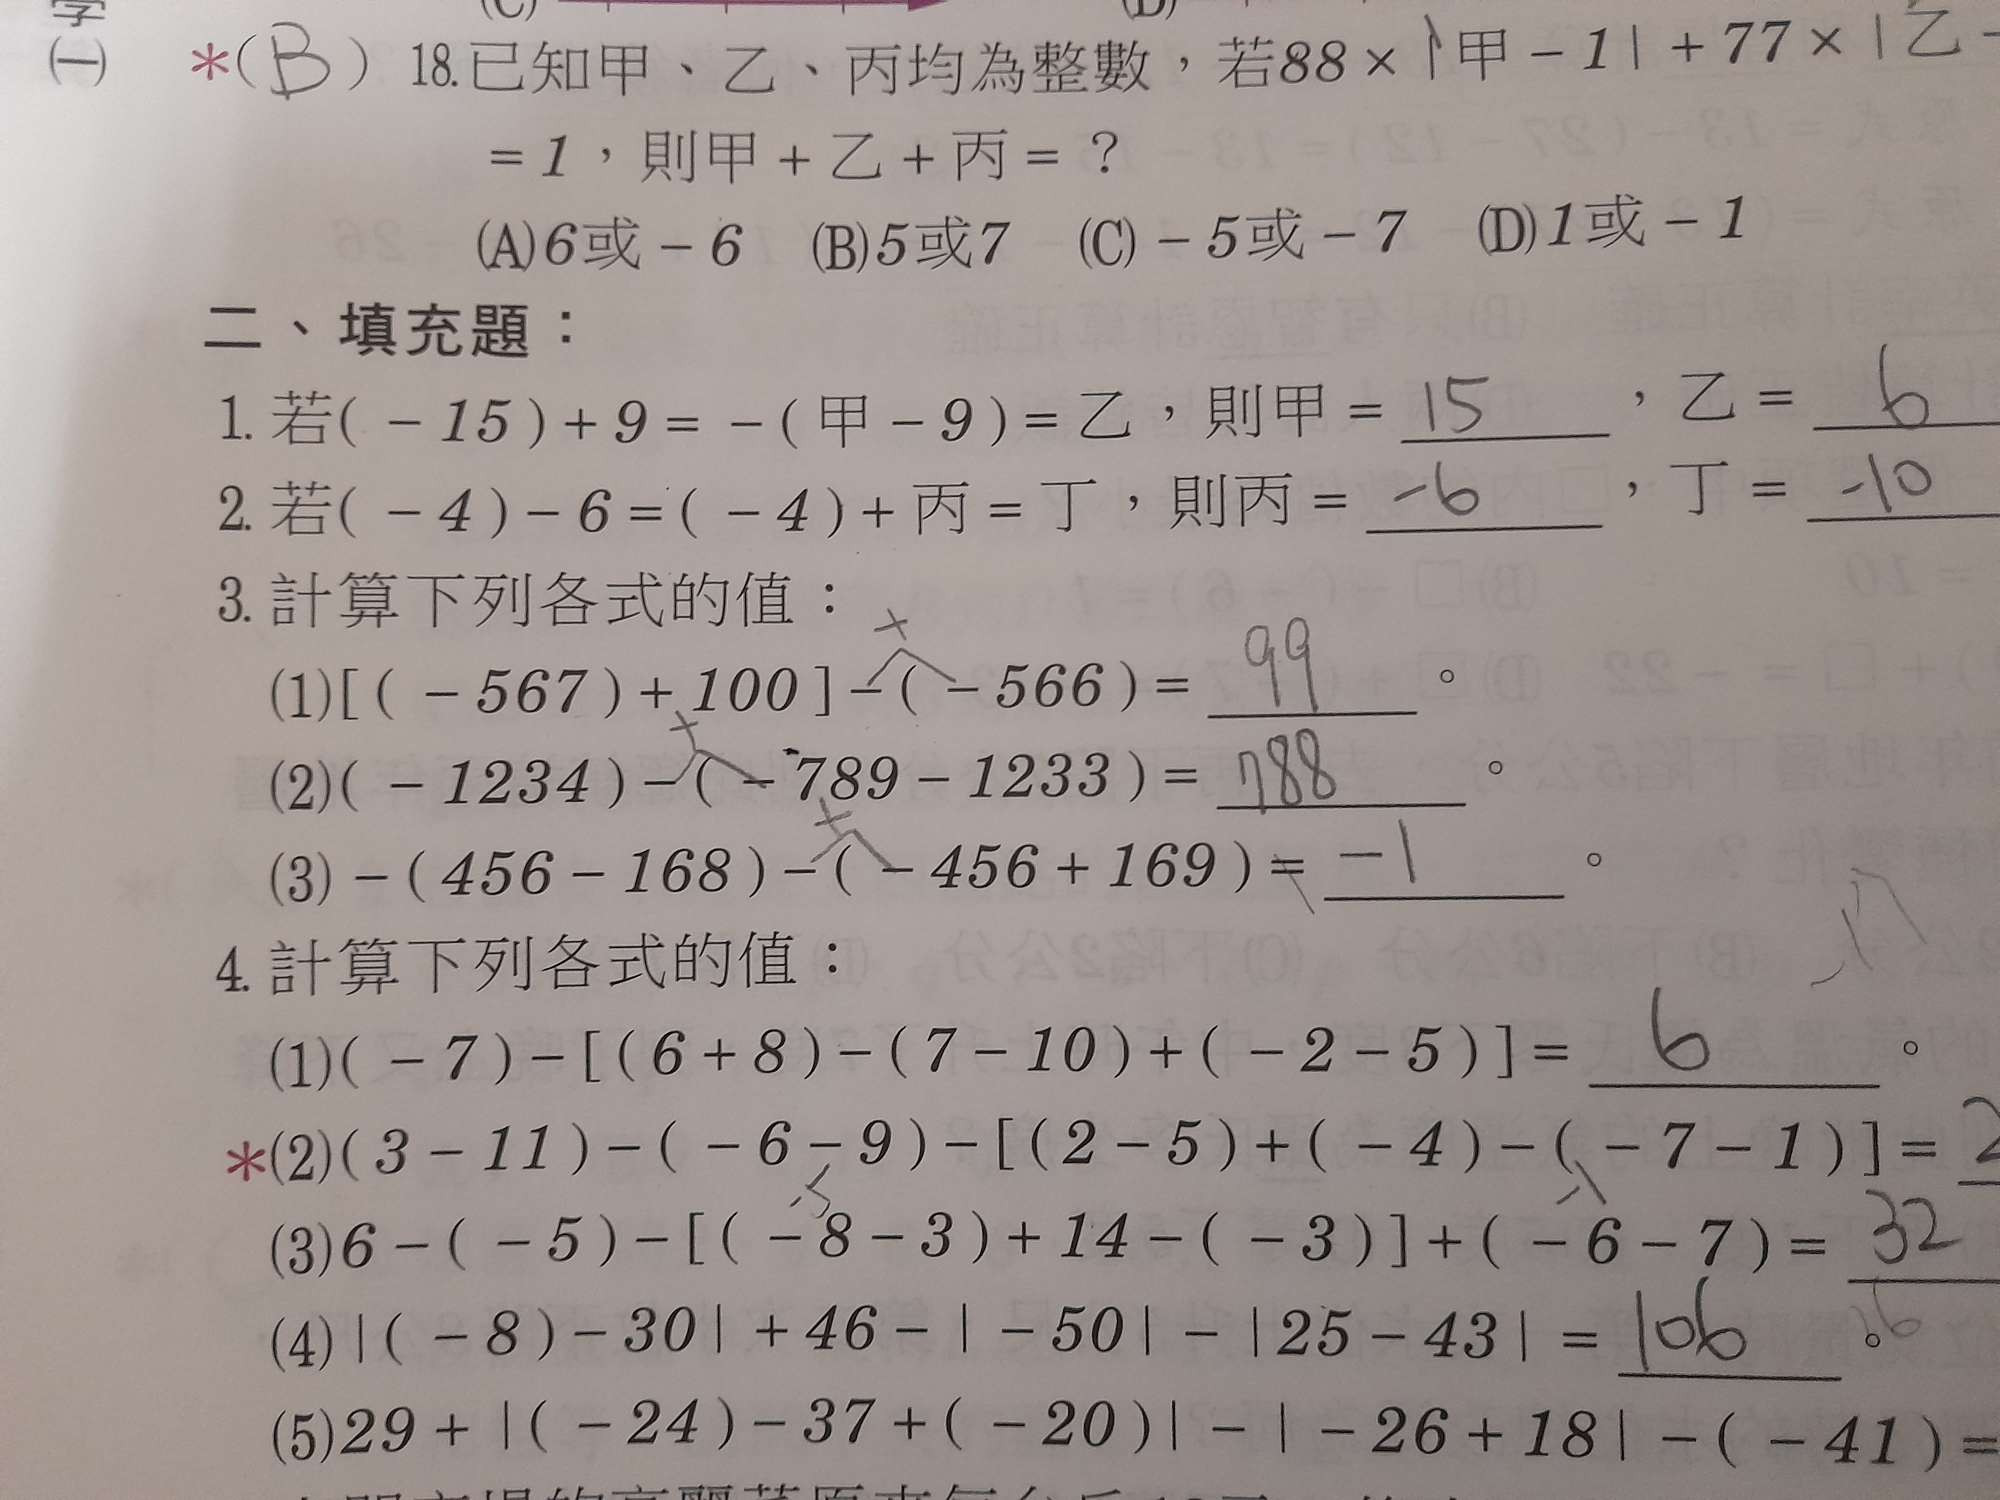 學
(一)
(C) (D)
*(B) 18.已知甲、乙、丙均為整數,若88×|甲-1|+77×|乙-
=1,則甲+乙+丙=?
(A)6或-6 (B)5或7 (C)-5或-7 (D)1或-1
二、填充題:
1.若(-15)+9=-(甲-9)=乙,則甲=15,乙=6
2.若(-4)-6=(-4)+丙=丁,則丙=-6,丁=-10
3.計算下列各式的值:
(1)[(-567)+100]-(-566)=99。
(2)(-1234)-(-789-1233)=788。
(3)-(456-168)-(-456+169)=-1。
4.計算下列各式的值:
(1)(-7)-[(6+8)-(7-10)+(-2-5)]=6。
*(2)(3-11)-(-6-9)-[(2-5)+(-4)-(-7-1)]=2
(3)6-(-5)-[(-8-3)+14-(-3)]+(-6-7)=32
(4)|(-8)-30|+46-|-50|-|25-43|=106。
(5)29+|(-24)-37+(-20)|-|-26+18|-(-41)=